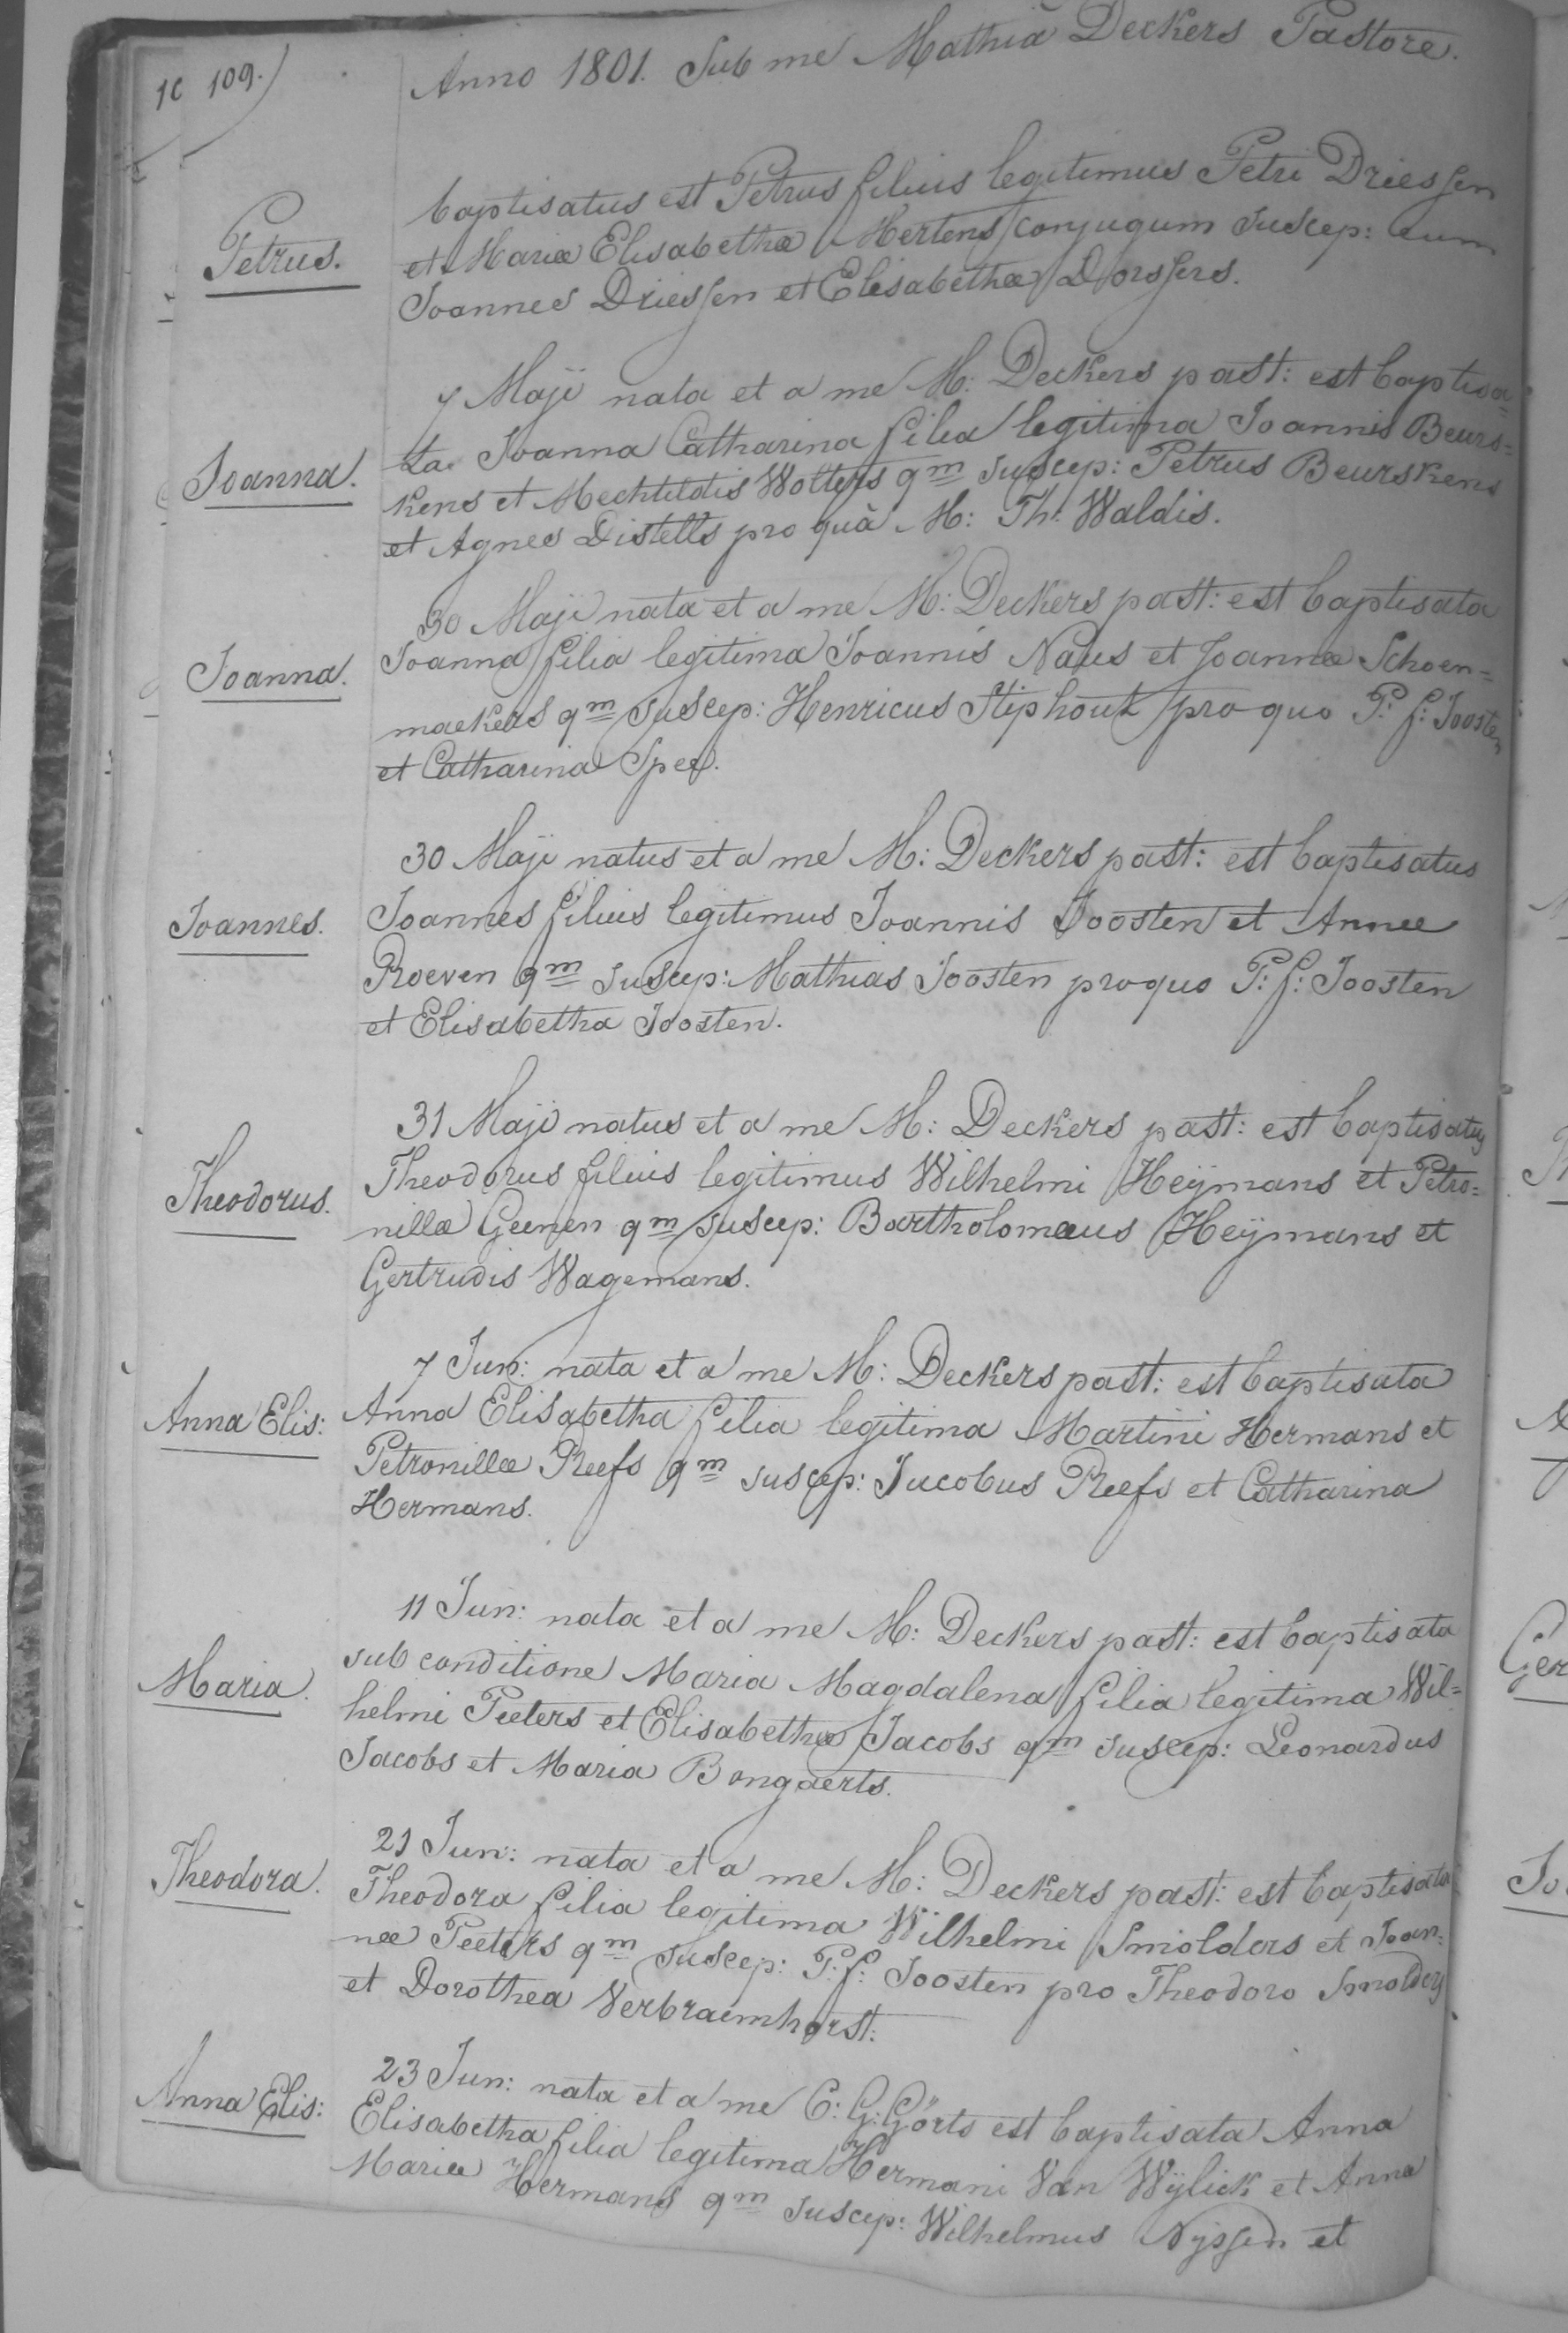 109.
Anno 1801. Sub me Mathiâ Deckers Pastore.
Petrus.
baptisatus est Petrus filius legitimus Petri Driessen
et Mariæ Elisabethæ Mertens conjugum suscep: eum
Joannes Driessen et Elisabethæ Dorssers.
Joanna.
7 Maji nata et a me M: Deckers past: est baptisa=
ta Joanna Catharina filia legitima Joannis Beurs=
kens et Mechtildis Wolters qm suscep: Petrus Beurskens
et Agnes Distells pro quâ M: Th: Waldis.
Joanna.
30 Maji nata et a me M: Deckers past: est baptisata
Joanna filia legitima Joannis Naus et Joannæ Schoen=
maekers qm suscep: Henricus Stiphout pro quo P: f: Joosten
et Catharina Spee.
Joannes.
30 Maji natus et a me M: Deckers past: est baptisatus
Joannes filius legitimus Joannis Joosten et Annæ
Roeven qm suscep: Mathias Joosten pro quo P: f: Joosten
et Elisabetha Joosten.
Theodorus.
31 Maji natus et a me M: Deckers past: est baptisatus
Theodorus filius legitimus Wilhelmi Heÿmans et Petro=
nillæ Geenen qm suscep: Bartholomæus Heÿmans et
Gertrudis Wagemans.
Anna Elis:
7 Jun: nata et a me M: Deckers past: est baptisata
Anna Elisabetha filia legitima Martini Hermans et
Petronillæ Reefs qm suscep: Jacobus Reefs et Catharina
Hermans.
Maria.
11 Jun: nata et a me M: Deckers past: est baptisata
sub conditione Maria Magdalena filia legitima Wil=
helmi Peeters et Elisabethæ Jacobs qm suscep: Leonardus
Jacobs et Maria Bongaerts.
Theodora.
21 Jun: nata et a me M: Deckers past: est baptisata
Theodora filia legitima Wilhelmi Smolders et Joan=
næ Peeters qm suscep: P: f: Joosten pro Theodoro Smolders
et Dorothea Verbraemhorst.
Anna Elis:
23 Jun: nata et a me C: G: Görts est baptisata Anna
Elisabetha filia legitima Hermani Van Wÿlick et Anna
Mariæ Hermans qm suscep: Wilhelmus Nijssen et